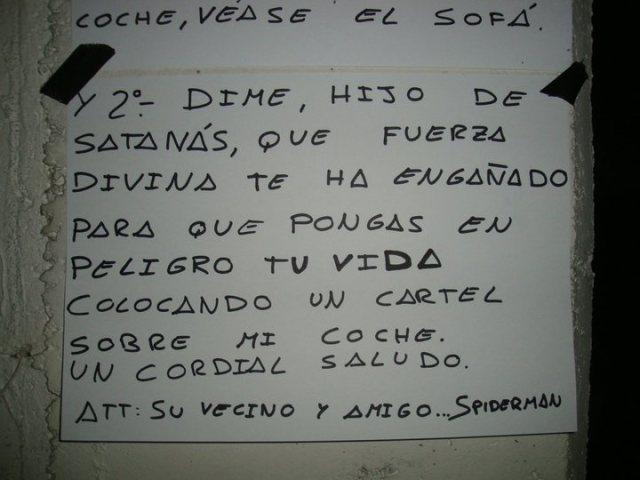 COCHE, VÉASE EL SOFÁ.
Y 2º- DIME, HIJO DE
SATANÁS, QUE FUERZA
DIVINA TE HA ENGAÑADO
PARA QUE PONGAS EN
PELIGRO TU VIDA
COLOCANDO UN CARTEL
SOBRE MI COCHE.
UN CORDIAL SALUDO.
ATT: SU VECINO Y AMIGO... SPIDERMAN